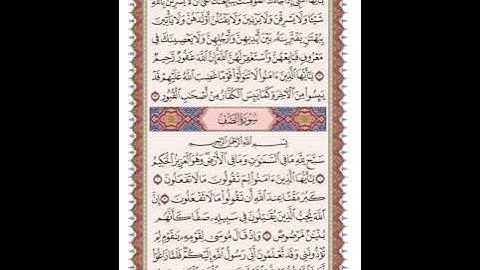 يَٰٓأَيُّهَا ٱلنَّبِىُّ إِذَا جَآءَكَ ٱلْمُؤْمِنَٰتُ يُبَايِعْنَكَ عَلَىٰٓ أَن لَّا يُشْرِكْنَ بِٱللَّهِ
شَيْـًٔا وَلَا يَسْرِقْنَ وَلَا يَزْنِينَ وَلَا يَقْتُلْنَ أَوْلَٰدَهُنَّ وَلَا يَأْتِينَ
بِبُهْتَٰنٍ يَفْتَرِينَهُۥ بَيْنَ أَيْدِيهِنَّ وَأَرْجُلِهِنَّ وَلَا يَعْصِينَكَ فِى
مَعْرُوفٍ فَبَايِعْهُنَّ وَٱسْتَغْفِرْ لَهُنَّ ٱللَّهَ إِنَّ ٱللَّهَ غَفُورٌ رَّحِيمٌ ١٢
يَٰٓأَيُّهَا ٱلَّذِينَ ءَامَنُوا۟ لَا تَتَوَلَّوْا۟ قَوْمًا غَضِبَ ٱللَّهُ عَلَيْهِمْ قَدْ
يَئِسُوا۟ مِنَ ٱلْـَٔاخِرَةِ كَمَا يَئِسَ ٱلْكُفَّارُ مِنْ أَصْحَٰبِ ٱلْقُبُورِ ١٣
سُورَةُ الصَّفِّ
بِسْمِ ٱللَّهِ ٱلرَّحْمَٰنِ ٱلرَّحِيمِ
سَبَّحَ لِلَّهِ مَا فِى ٱلسَّمَٰوَٰتِ وَمَا فِى ٱلْأَرْضِ وَهُوَ ٱلْعَزِيزُ ٱلْحَكِيمُ
١ يَٰٓأَيُّهَا ٱلَّذِينَ ءَامَنُوا۟ لِمَ تَقُولُونَ مَا لَا تَفْعَلُونَ ٢
كَبُرَ مَقْتًا عِندَ ٱللَّهِ أَن تَقُولُوا۟ مَا لَا تَفْعَلُونَ ٣ إِنَّ
ٱللَّهَ يُحِبُّ ٱلَّذِينَ يُقَٰتِلُونَ فِى سَبِيلِهِۦ صَفًّا كَأَنَّهُم
بُنْيَٰنٌ مَّرْصُوصٌ ٤ وَإِذْ قَالَ مُوسَىٰ لِقَوْمِهِۦ يَٰقَوْمِ لِمَ
تُؤْذُونَنِى وَقَد تَّعْلَمُونَ أَنِّى رَسُولُ ٱللَّهِ إِلَيْكُمْ فَلَمَّا زَاغُوٓا۟